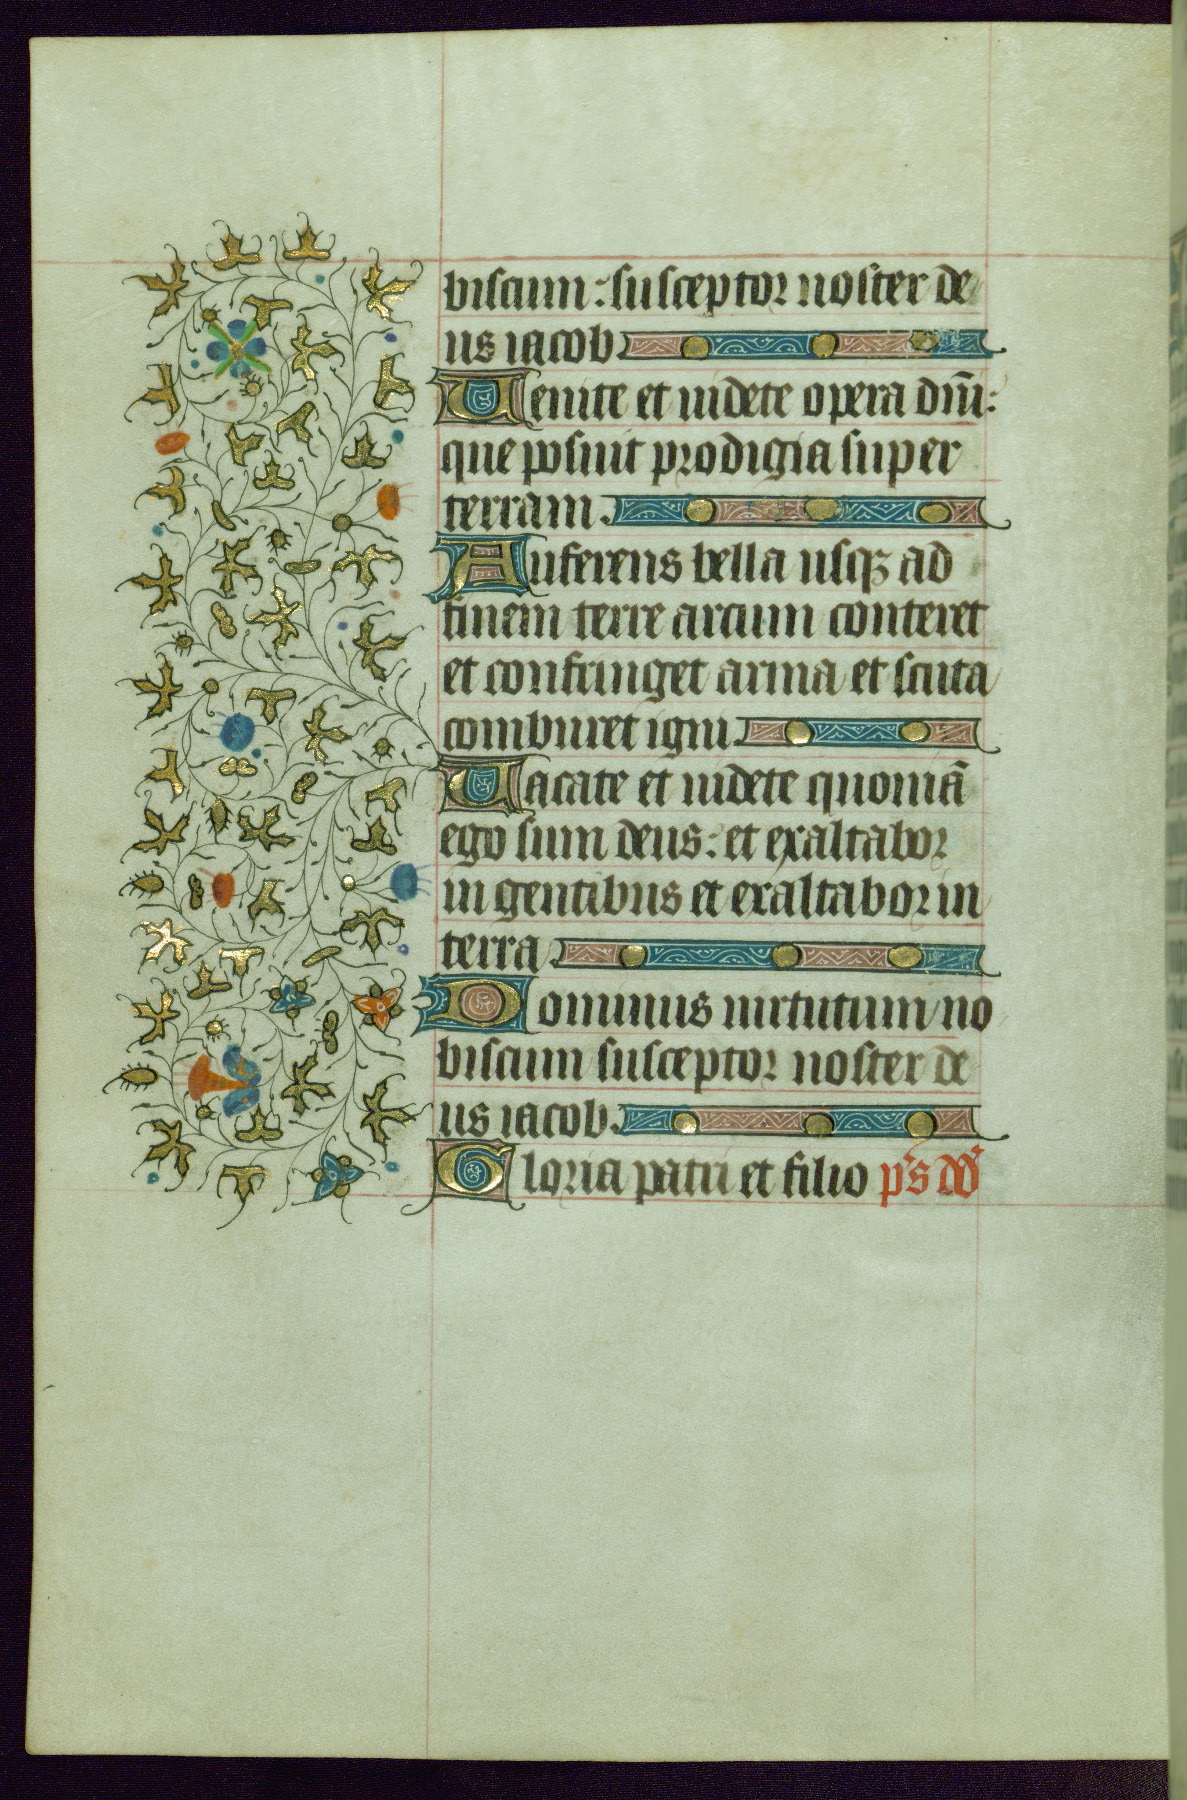 biscum: susceptor noster de
us iacob.
Uenite et uidete opera dn̄i:
que posuit prodigia super
terram.
Auferens bella usqꝫ ad
finem terre arcum conteret
et confringet arma et scuta
comburet igni.
Uacate et uidete quoniā
ego sum deus: et exaltabor
in gentibus et exaltabor in
terra
Dominus uirtutum no
biscum susceptor noster de
us iacob.
Gloria patri et filio p̄s dd̄